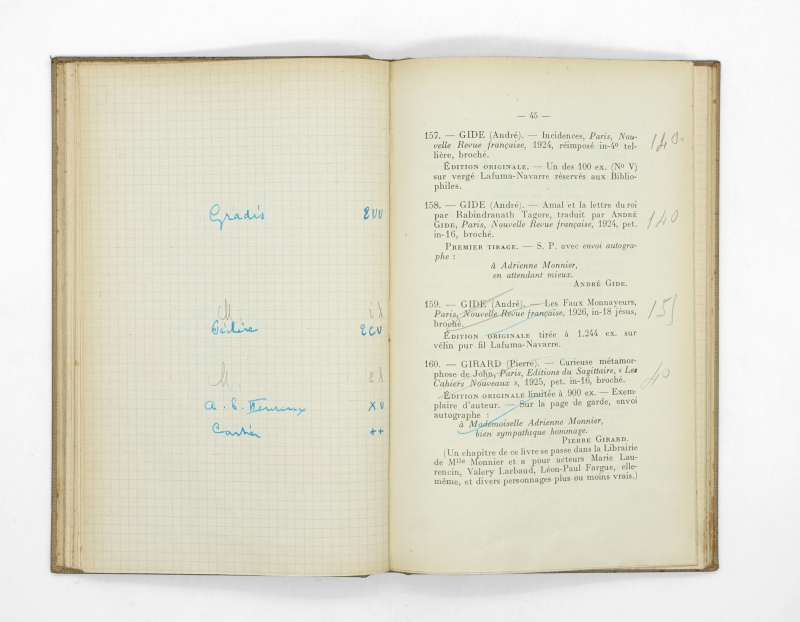 Gradis
— 45 —
157. — GIDE (André). — Incidences, Paris, Nou-
velle Revue française, 1924, réimposé in-4º tel-
lière, broché.
ÉDITION ORIGINALE. — Un des 100 ex. (Nº V)
sur vergé Lafuma-Navarre réservés aux Biblio-
philes.
158. — GIDE (André). — Amal et la lettre du roi
par Rabindranath Tagore, traduit par ANDRÉ
GIDE, Paris, Nouvelle Revue française, 1924, pet.
in-16, broché.
140
PREMIER TIRAGE. — S. P. avec envoi autogra-
phe :
à Adrienne Monnier,
en attendant mieux.
ANDRÉ GIDE.
159. — GIDE (André). — Les Faux Monnayeurs,
Paris, Nouvelle Revue française, 1926, in-18 jésus,
broché.
ÉDITION ORIGINALE tirée à 1.244 ex. sur
vélin pur fil Lafuma-Navarre.
160. — GIRARD (Pierre). — Curieuse métamor-
phose de John, Paris, Editions du Sagittaire, « Les
Cahiers Nouveaux », 1925, pet. in-16, broché.
40
ÉDITION ORIGINALE limitée à 900 ex. — Exem-
plaire d'auteur. — Sur la page de garde, envoi
autographe :
à Mademoiselle Adrienne Monnier,
bien sympathique hommage.
PIERRE GIRARD.
(Un chapitre de ce livre se passe dans la Librairie
de Mlle Monnier et a pour acteurs Marie Lau-
rencin, Valery Larbaud, Léon-Paul Fargue, elle-
même, et divers personnages plus ou moins vrais.)